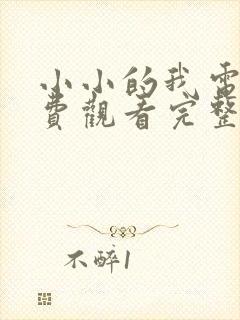 小小的我電
費觀看完整
不醉1